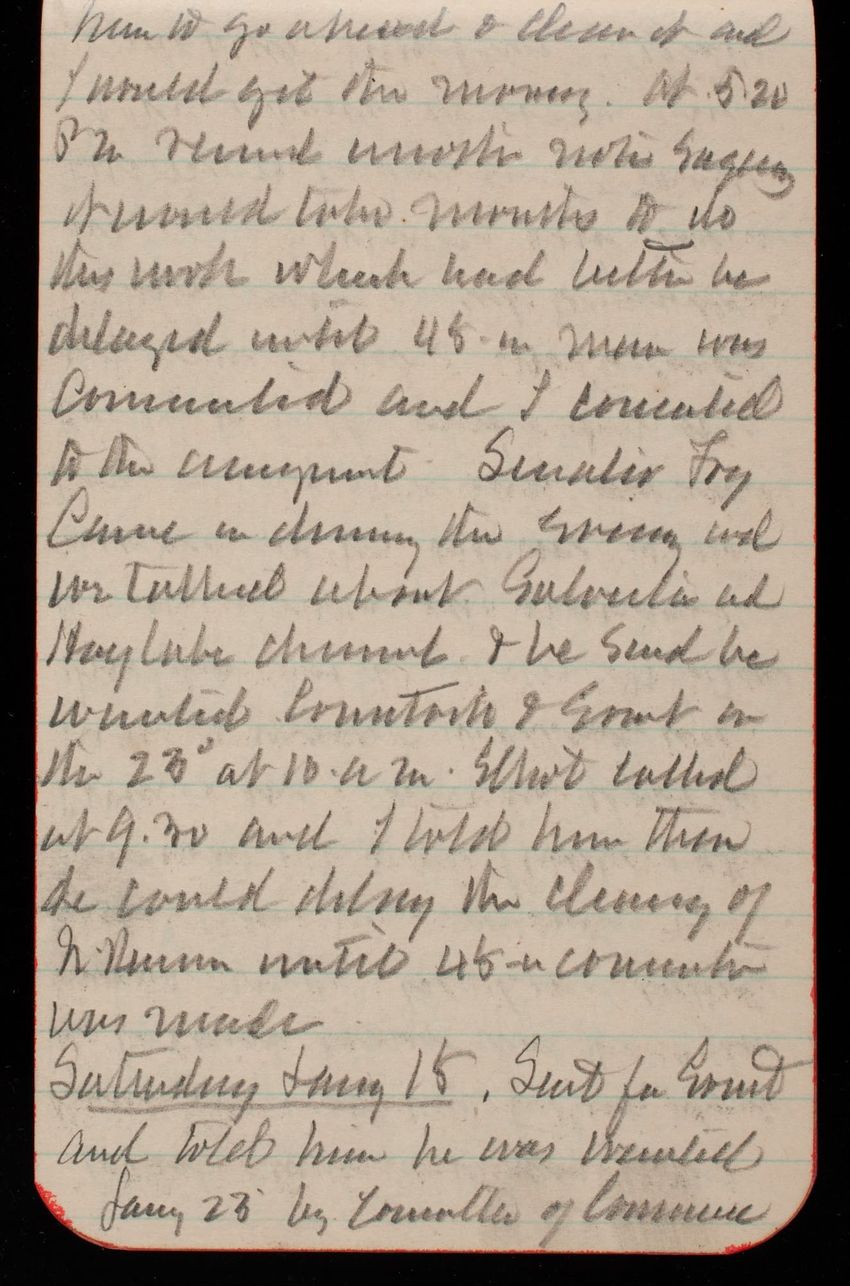 him to go ahead & clean it and
I would get the money. At 5.20
P m received another note saying
it would take months to do
this work which had better be
delayed until 48-in main was
Connected and I consented
to the arrangement Senator Fry
Came in during the Evening and
we talked about Galveston and
Hay Lake channel. & he said he
wanted Comstock & Ernst on
the 23d at 10 a m. Elliot called
at 9.30 and I told him then
he could delay the cleaning of
reservoir until 48-in connection
was made
Saturday Jany 18. Sent for Ernst
and told him he was wanted
Jany 23 by Committee of Commerce